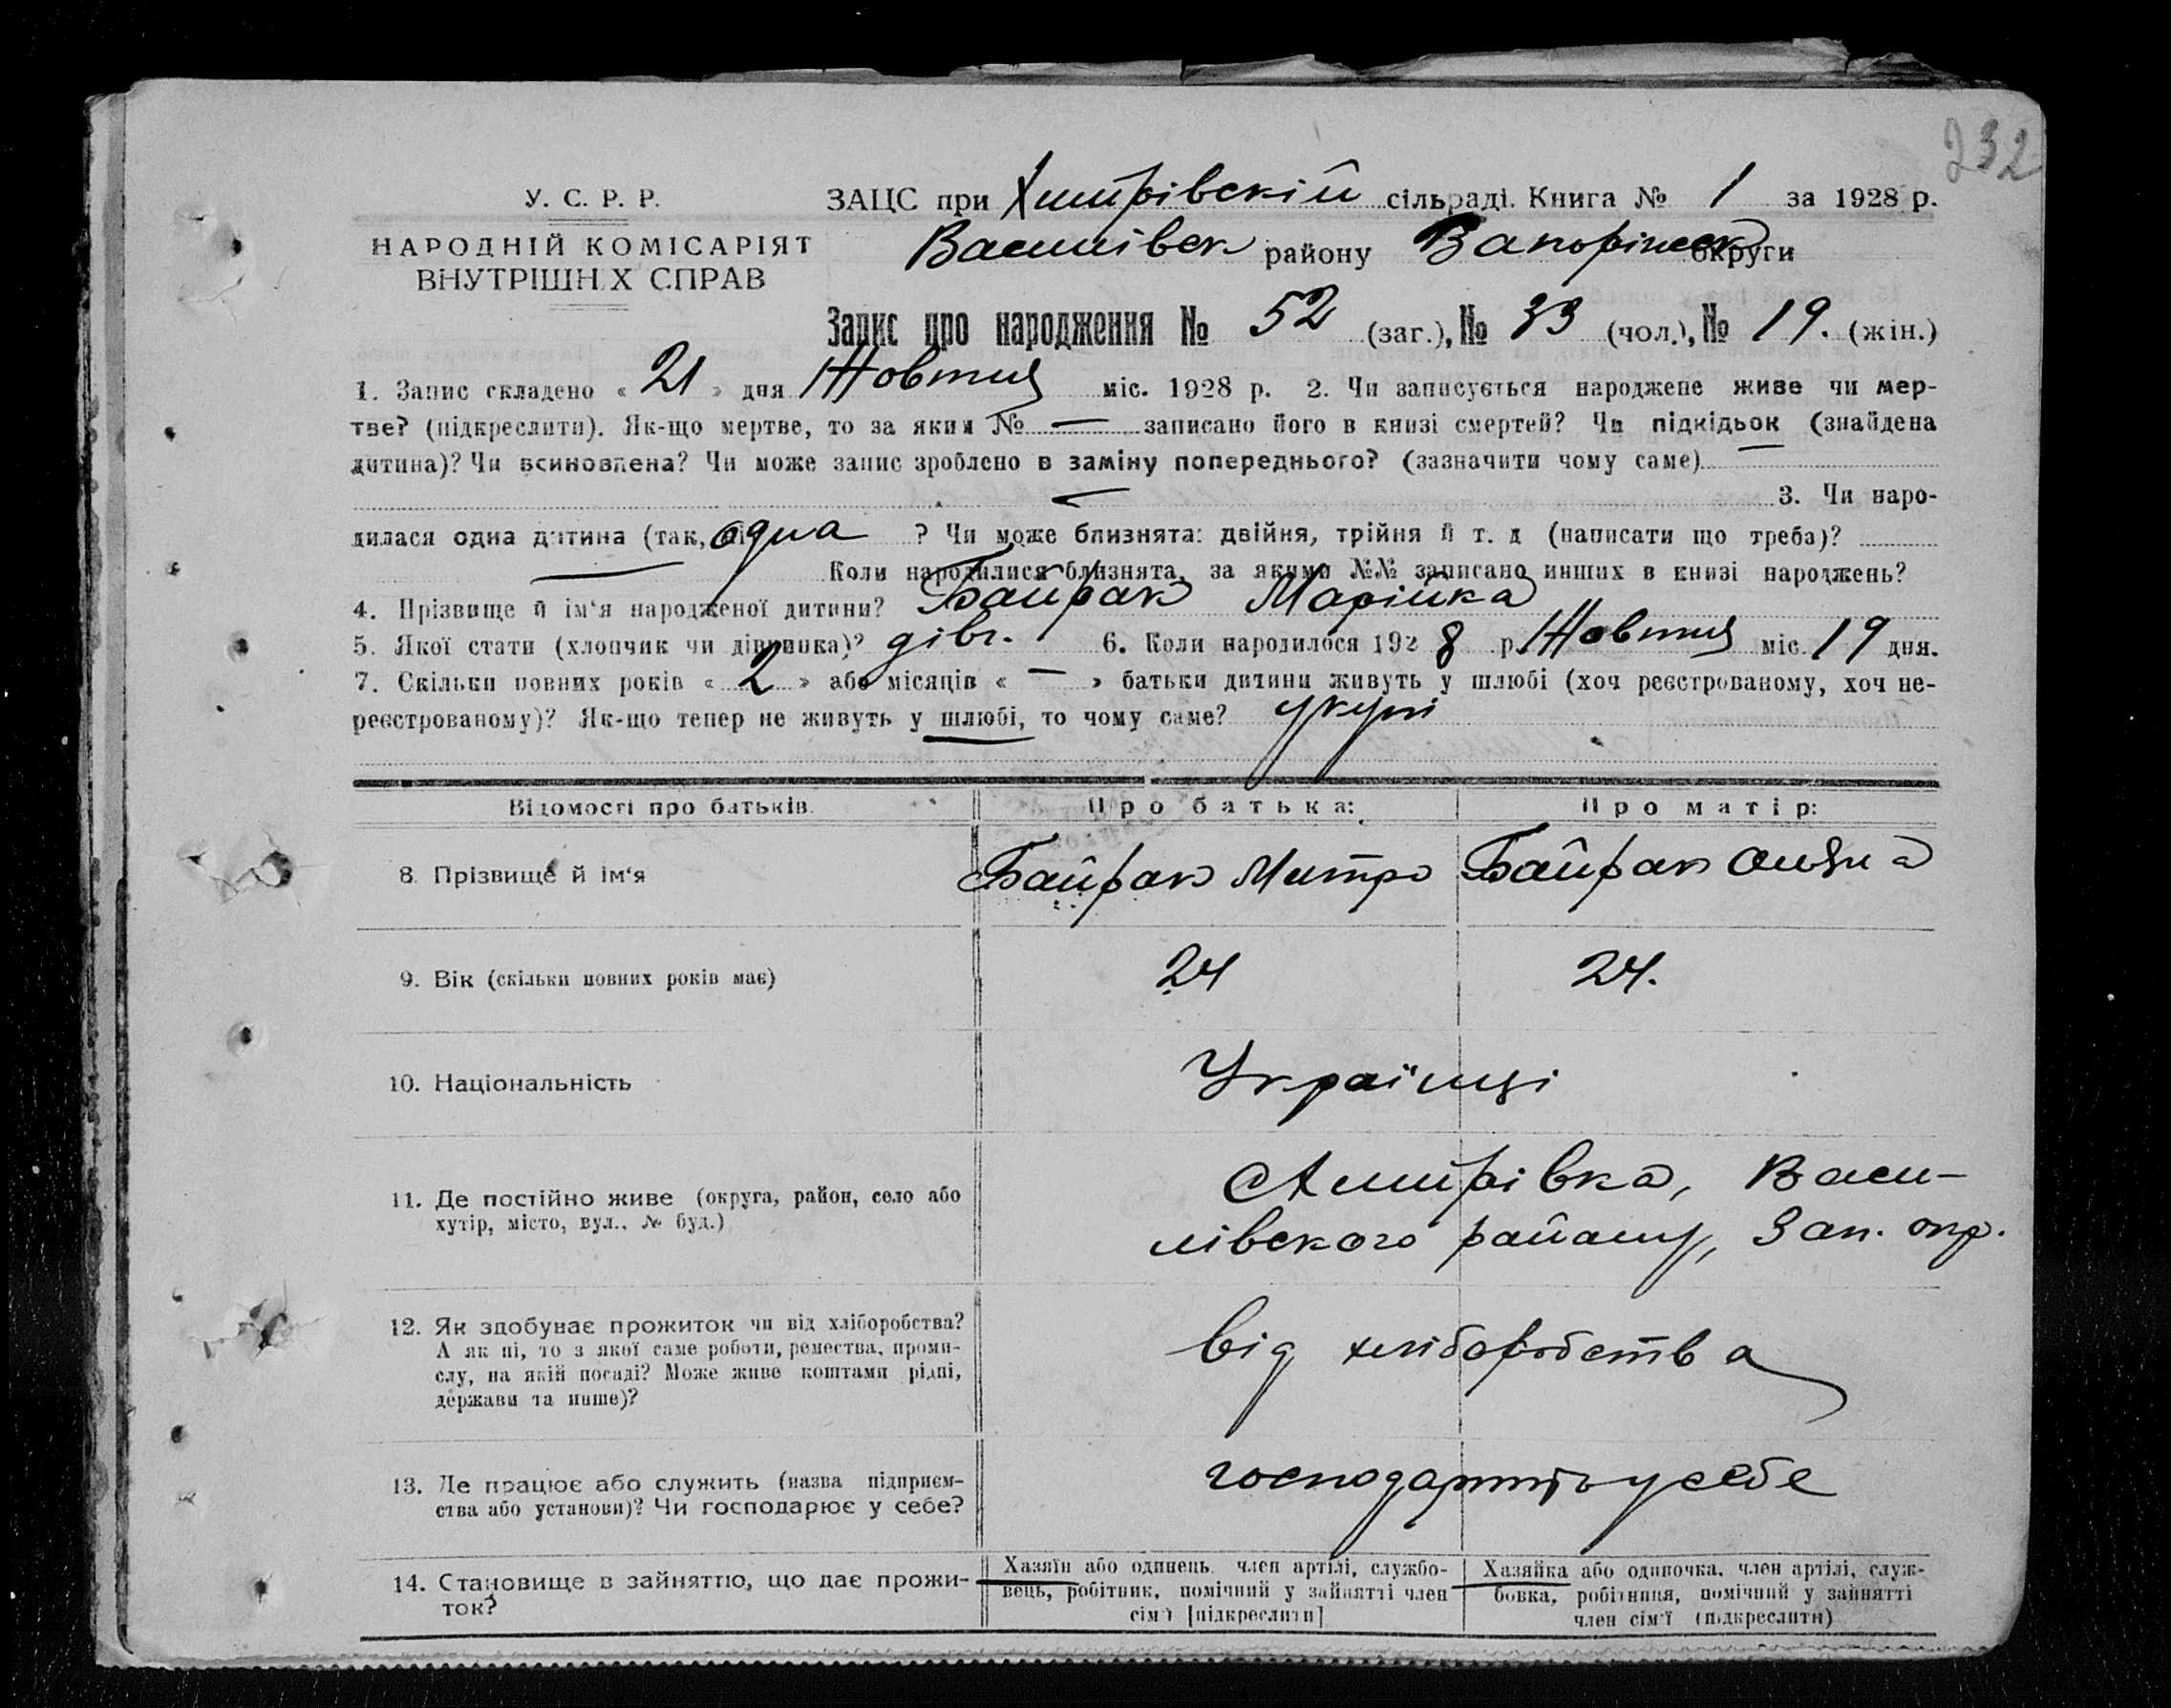 232
У. С. Р. Р.
НАРОДНІЙ КОМІСАРІЯТ
ВНУТРІШН.Х СПРАВ
ЗАЦС при сільраді. Книга № 1 за 1928 р.
Василівськ району Запоріжськ округи
Запис про народження № 52 (заг.), № 33 (чол.), № 19. (жін.)
1. Запис складено « 21 » дня Жовтня міс. 1928 р. 2. Чи записується народжене живе чи мер-
тве? (підкреслити). Як-що мертве, то за яким № — записано його в книзі смертей? Чи підкідьок (знайдена
дитина)? Чи всиновлена? Чи може запис зроблено в заміну попереднього? (зазначити чому саме) —
— 3. Чи наро-
дилася одна дитина (так, ні одна ? Чи може близнята: двійня, трійня й т. д (написати що треба)?
— Коли народилися близнята, за якими №№ записано инших в книзі народжень?
4. Прізвище й ім‘я народженої дитини? Байрак Марійка
5. Якої стати (хлопчик чи дівчинка)? дівч. 6. Коли народилося 1928 р. Жовтня міс. 19 дня.
7. Скільки повних років « 2 » або місяців « — » батьки дитини живуть у шлюбі (хоч реєстрованому, хоч не-
реєстрованому)? Як-що тепер не живуть у шлюбі, то чому саме? укупі
Відомості про батьків. Про батька: Про матір:
8. Прізвище й ім‘я Байрак Митро Байрак
9. Вік (скільки повних років має) 24 24.
10. Національність Українці
11. Де постійно живе (округа, район, село або Васи-
хутір, місто, вул., № буд.) лівского району, Зап. окр.
12. Як здобуває прожиток чи від хліборобства?
А як ні, то з якої саме роботи, ремества, проми- від хліборобства
слу, на якій посаді? Може живе коштами рідні,
держави та инше)?
13. Де працює або служить (назва підприєм- господарюють у себе
ства або установи)? Чи господарює у себе?
14. Становище в зайняттю, що дає прожи-
ток?
Хазяїн або одинець, член артілі, службо-
вець, робітник, помічний у зайнятті член
сім‘ї [підкреслити]
Хазяйка або одиночка, член артілі, служ-
бовка, робітниця, помічний у зайнятті
член сім‘ї (підкреслити)